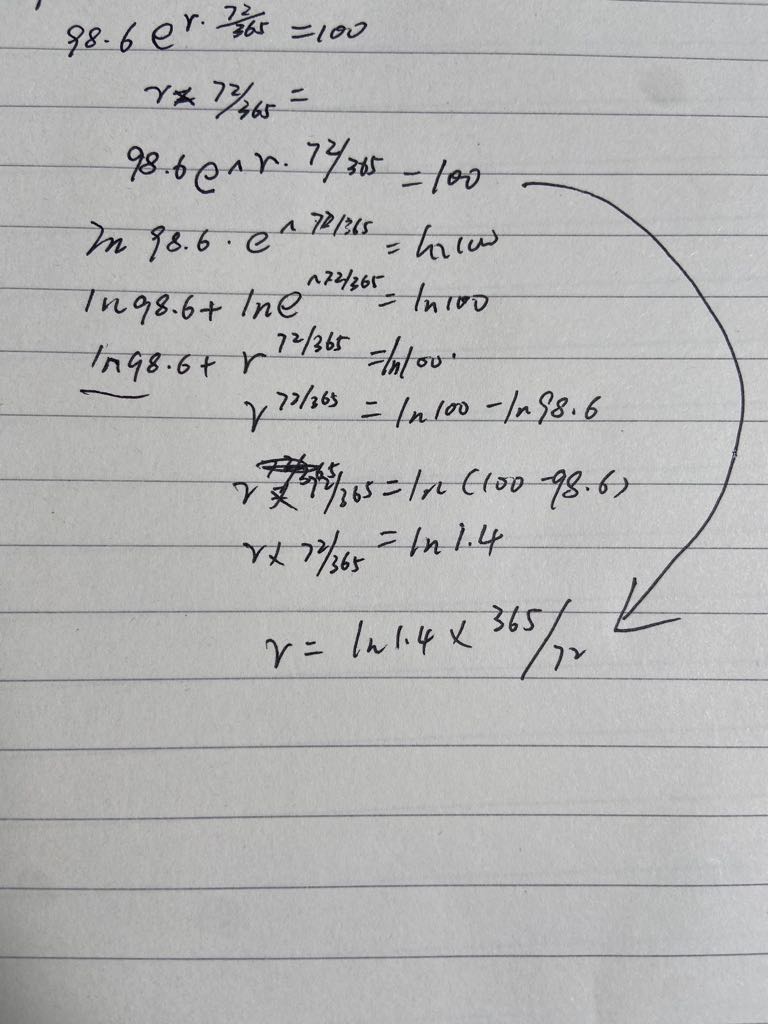 98.6 e^r· 72/365 = 100
r × 72/365 =
98.6 e^r· 72/365 = 100
ln 98.6 · e^72/365 = ln100
ln98.6 + lne^72/365 = ln100
ln98.6 + r 72/365 = ln100.
r 72/365 = ln100 - ln98.6
r × 72/365 = ln (100 - 98.6)
r × 72/365 = ln 1.4
r = ln 1.4 × 365/72